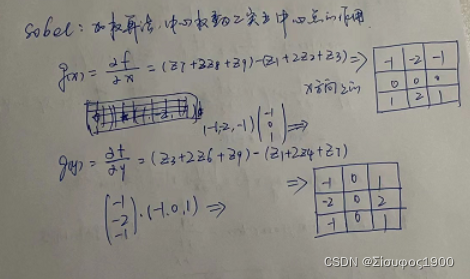 Sobel: 加权算法, 中心权重2 突出中心点的作用
g(x) = ∂f/∂x = (z7+2z8+z9)-(z1+2z2+z3) =>
-1 -2 -1
0 0 0
1 2 1
x方向
(-1,-2,-1) (-1 0 1) =>
g(y) = ∂f/∂y = (z3+2z6+z9)-(z1+2z4+z7)
=>
-1 0 1
-2 0 2
-1 0 1
(-1 -2 -1)·(-1,0,1) =>
CSDN @Σίσυφος1900